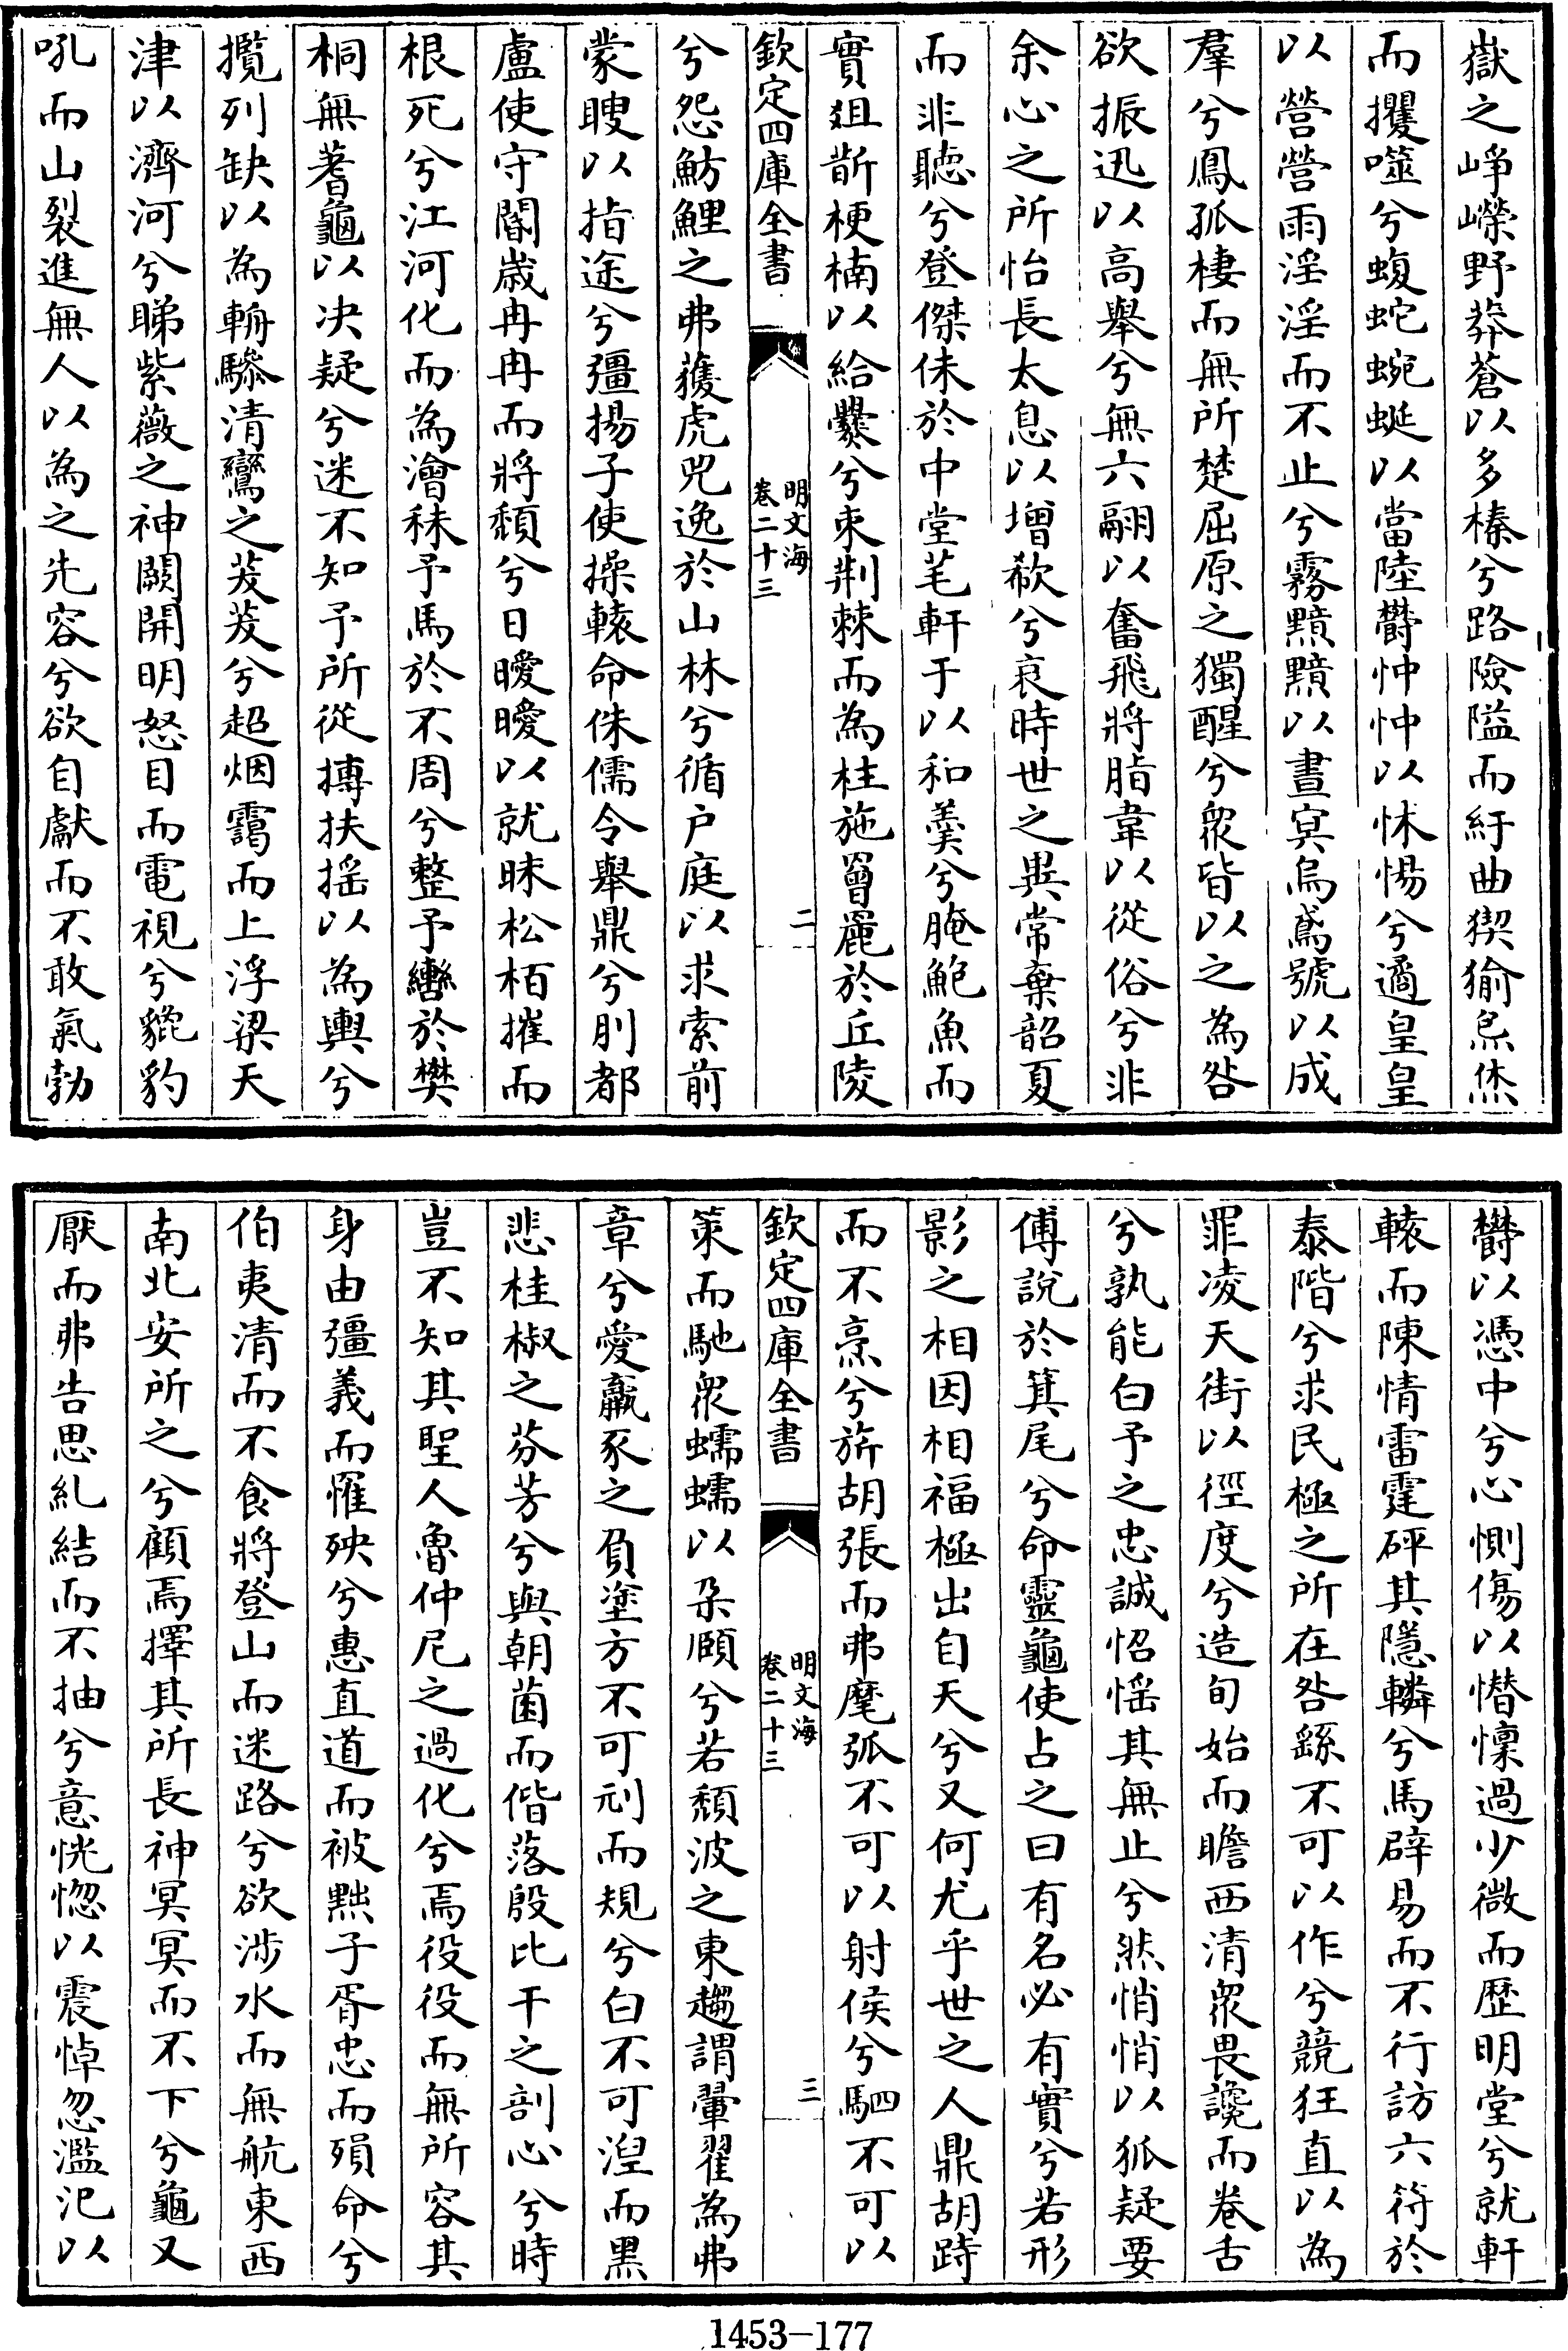 嶽之崢嶸野莽蒼以多榛兮路險隘而紆曲猰㺄炰烋
而攫噬兮蝮蛇蜿蜒以當陸欝忡忡以怵惕兮遹皇皇
以營營雨淫淫而不止兮霧黯黯以晝㝠烏鳶號以成
羣兮鳳孤棲而無所楚屈原之獨醒兮衆皆以之為咎
欲振迅以高舉兮無六翮以奮飛將脂韋以從俗兮非
余心之所怡長太息以增欷兮哀時世之異常棄韶夏
而非聽兮登傑侏於中堂芼軒于以和羹兮腌鮑魚而
實俎斮梗楠以給爨兮束荆棘而為柱施罾罷於丘陵
欽定四庫全書
明文海
卷二十三
二
兮怨魴鯉之弗獲虎兕逸於山林兮循户庭以求索前
蒙瞍以指途兮彊揚子使操轅命侏儒令舉鼎兮刖都
盧使守閽嵗冉冉而將頽兮日曖曖以就昧松栢摧而
根死兮江河化而為澮秣予馬於不周兮整予轡於樊
桐無蓍龜以决疑兮迷不知予所從搏扶搖以為輿兮
攬列缺以為輈驂清鸞之茇茇兮超烟靄而上浮梁天
津以濟河兮睇紫薇之神闕開明怒目而電視兮貔豹
吼而山裂進無人以為之先容兮欲自獻而不敢氣勃
欝以憑中兮心惻傷以憯懔過少微而歴明堂兮就軒
轅而陳情雷霆砰其隱轔兮馬辟易而不行訪六符於
泰階兮求民極之所在咎繇不可以作兮競狂直以為
罪凌天街以徑度兮造旬始而瞻西清衆畏讒而卷舌
兮孰能白予之忠誠怊慆其無止兮然悄悄以狐疑要
傅說於箕尾兮命靈龜使占之曰有名必有實兮若形
影之相因相福極出自天兮又何尤乎世之人鼎胡跱
而不烹兮旂胡張而弗麾弧不可以射侯兮駟不可以
欽定四庫全書
明文海
卷二十三
三
策而馳衆蠕蠕以朶頤兮若頽波之東趨謂翬翟為弗
章兮愛羸豕之負塗方不可刓而規兮白不可湼而黑
悲桂椒之芬芳兮與朝菌而偕落殷比干之剖心兮時
豈不知其聖人魯仲尼之過化兮焉役役而無所容其
身由彊義而罹殃兮惠直道而被黜子胥忠而殞命兮
伯夷清而不食將登山而迷路兮欲涉水而無航東西
南北安所之兮顧焉擇其所長神冥冥而不下兮龜又
厭而弗告思糺結而不抽兮意恍惚以震悼忽濫氾以
1453-177